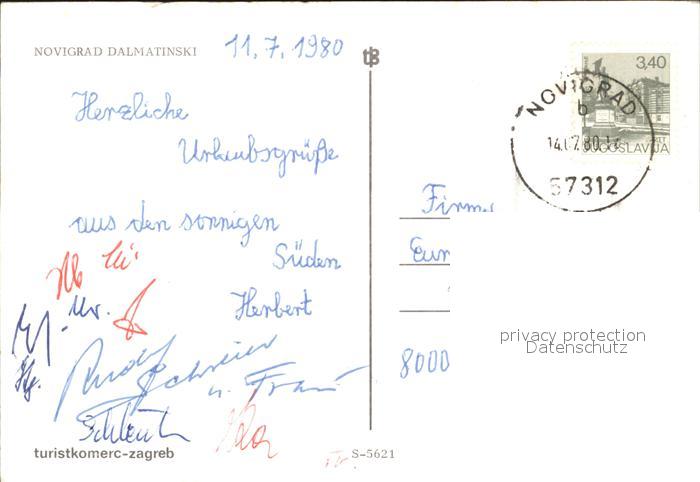 NOVIGRAD DALMATINSKI
11.7.1980
Herzliche
Urlaubsgrüße
aus den sonnigen
Süden
Herbert
Rudolf
Schreier
u. Frau
turistkomerc-zagreb
S-5621
3,40
JUGOSLAVIJA
NOVIGRAD
b
14.07.80.14
57312
Firma
Eur
8000
privacy protection
Datenschutz